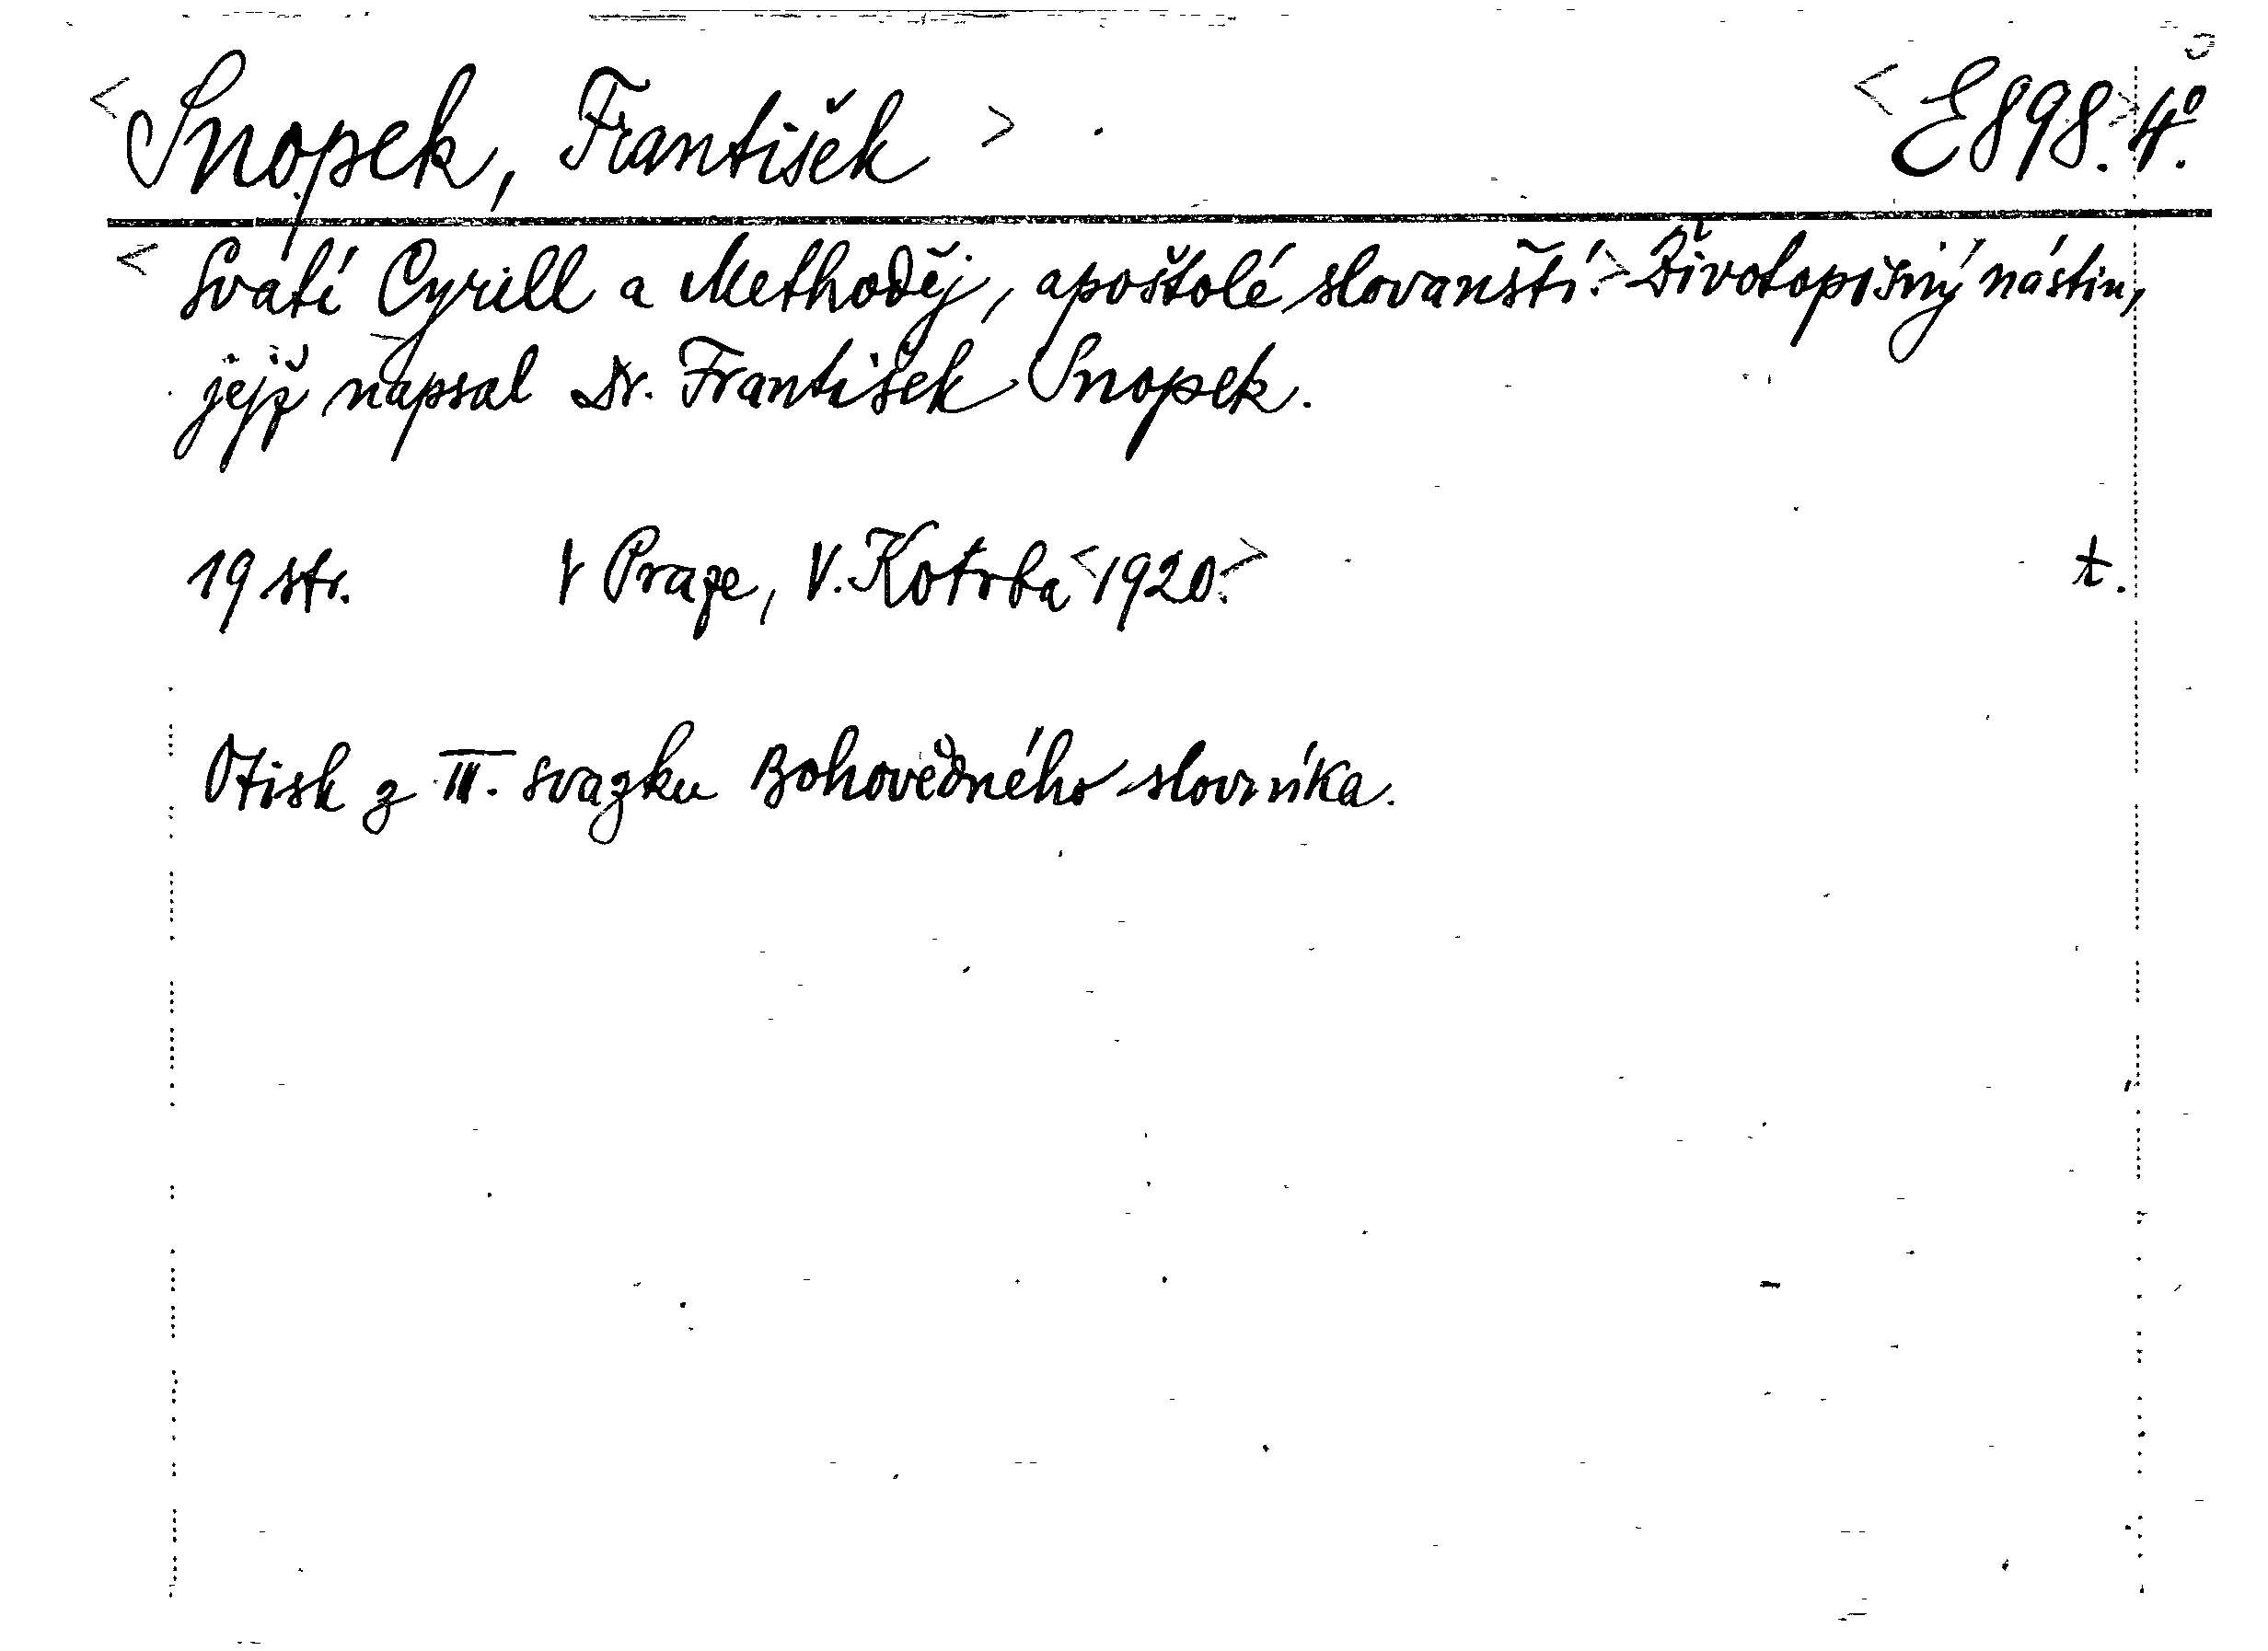 <Snopek, František> <E898.>4º.
<Svatí Cyrill a Methoděj, apoštolé slovanští.> Životopisný nástin,
jejž napsal Dr. František Snopek.
19 str. V Praze, V. Kotrba <1920.> t.
Otisk z III. svazku Bohovědného slovníka.